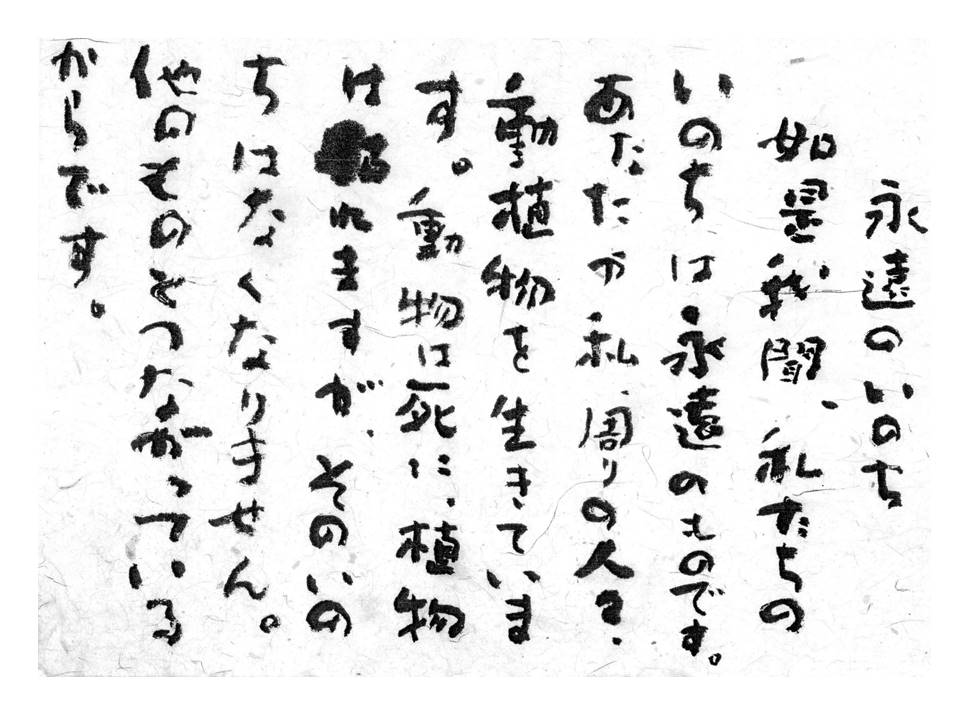 永遠のいのち
如是我聞、私たちの
いのちは永遠のものです。
あなたや私、周りの人々、
動植物を生きていま
す。動物は死に、植物
は枯れますが、そのいの
ちはなくなりません。
他のものとつながっている
からです。